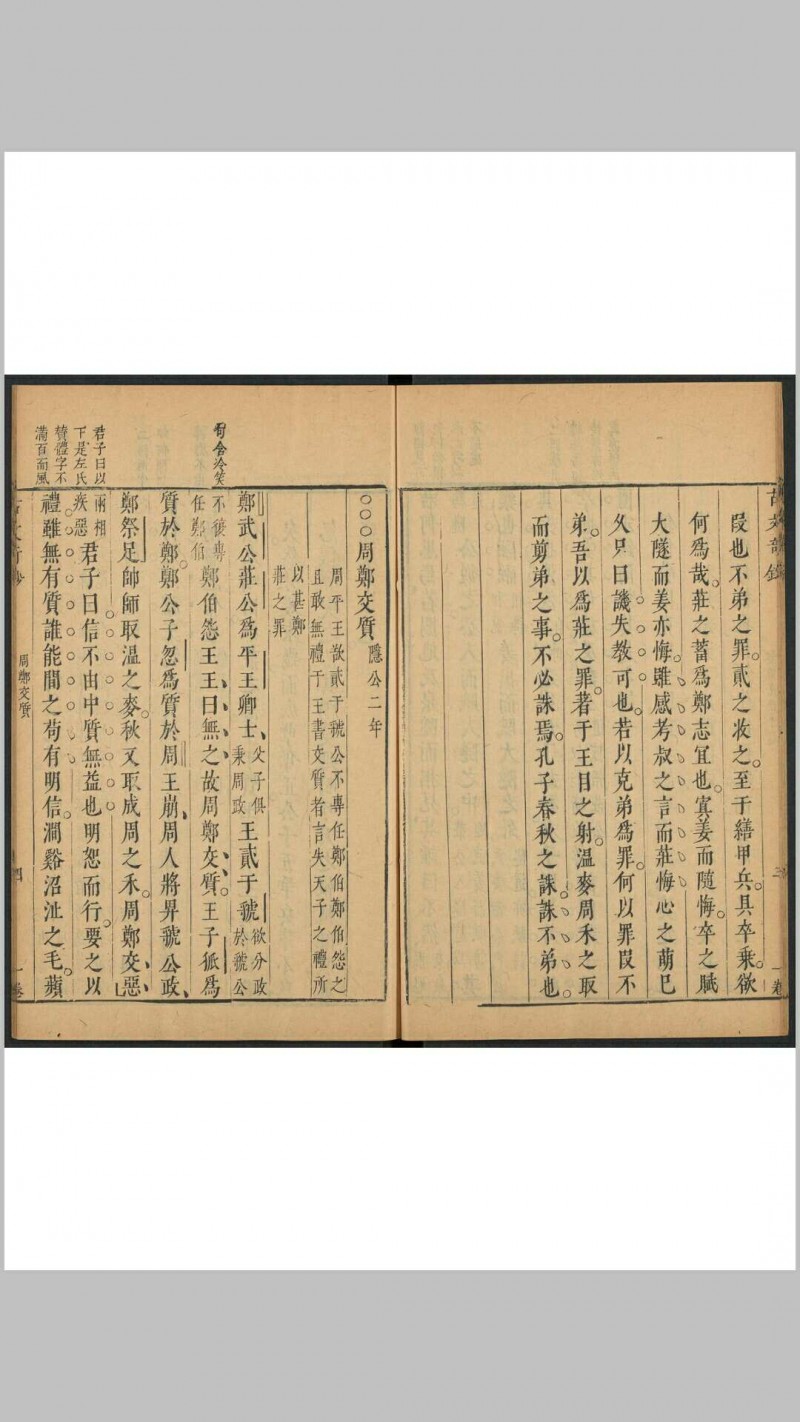 段也不弟之罪。貳之收之。至于繕甲兵。具卒乘。欲
何爲哉。莊之蓄爲鄭志宜也。寘姜而隨悔。卒之賦
大隧而姜亦悔。雖感考叔之言而莊悔心之萌已
久。只曰譏失教可也。若以克弟爲罪。何以罪段不
弟。吾以爲莊之罪著于王目之射。溫麥周禾之取
而剪弟之事。不必誅焉。孔子春秋之誅。誅不弟也。
二
一卷
○○○周鄭交質 隱公二年
周平王欲貳于虢公不專任鄭伯鄭伯怨之
且敢無禮于王書交質者言失天子之禮所
以甚鄭
莊之罪
句含冷笑
鄭武公莊公爲平王卿士、父子俱秉周政王貳于虢欲分政於虢公
不復專任鄭伯鄭伯怨王、王曰無之、故周鄭交質。王子狐爲
質於鄭。鄭公子忽爲質於周王崩、周人將畀虢公政、
鄭祭足帥師取溫之麥。秋又取成周之禾。周鄭交惡、
君子曰以
下是左氏
贊體字不
滿百而風
兩相疾惡君子曰信不由中質無益也明恕而行。要之以
禮。雖無有質誰能間之苟有明信。澗谿沼沚之毛。蘋
周鄭交質
四
一卷